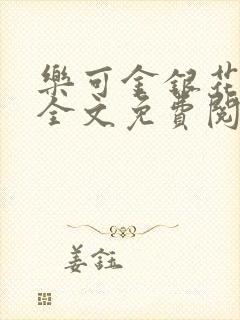 樂可金銀花
全文免費閱
姜鈺